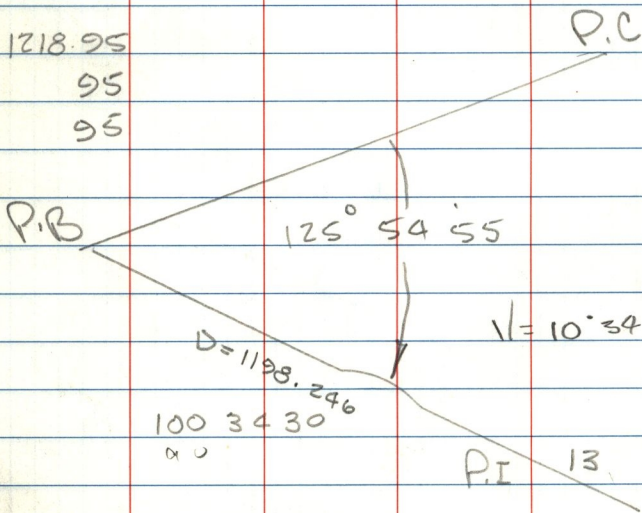 1218.95
95
95
P.C
P.B
125° 54' 55
V= 10°34
D= 1198.246
100 34 30
P.I 13